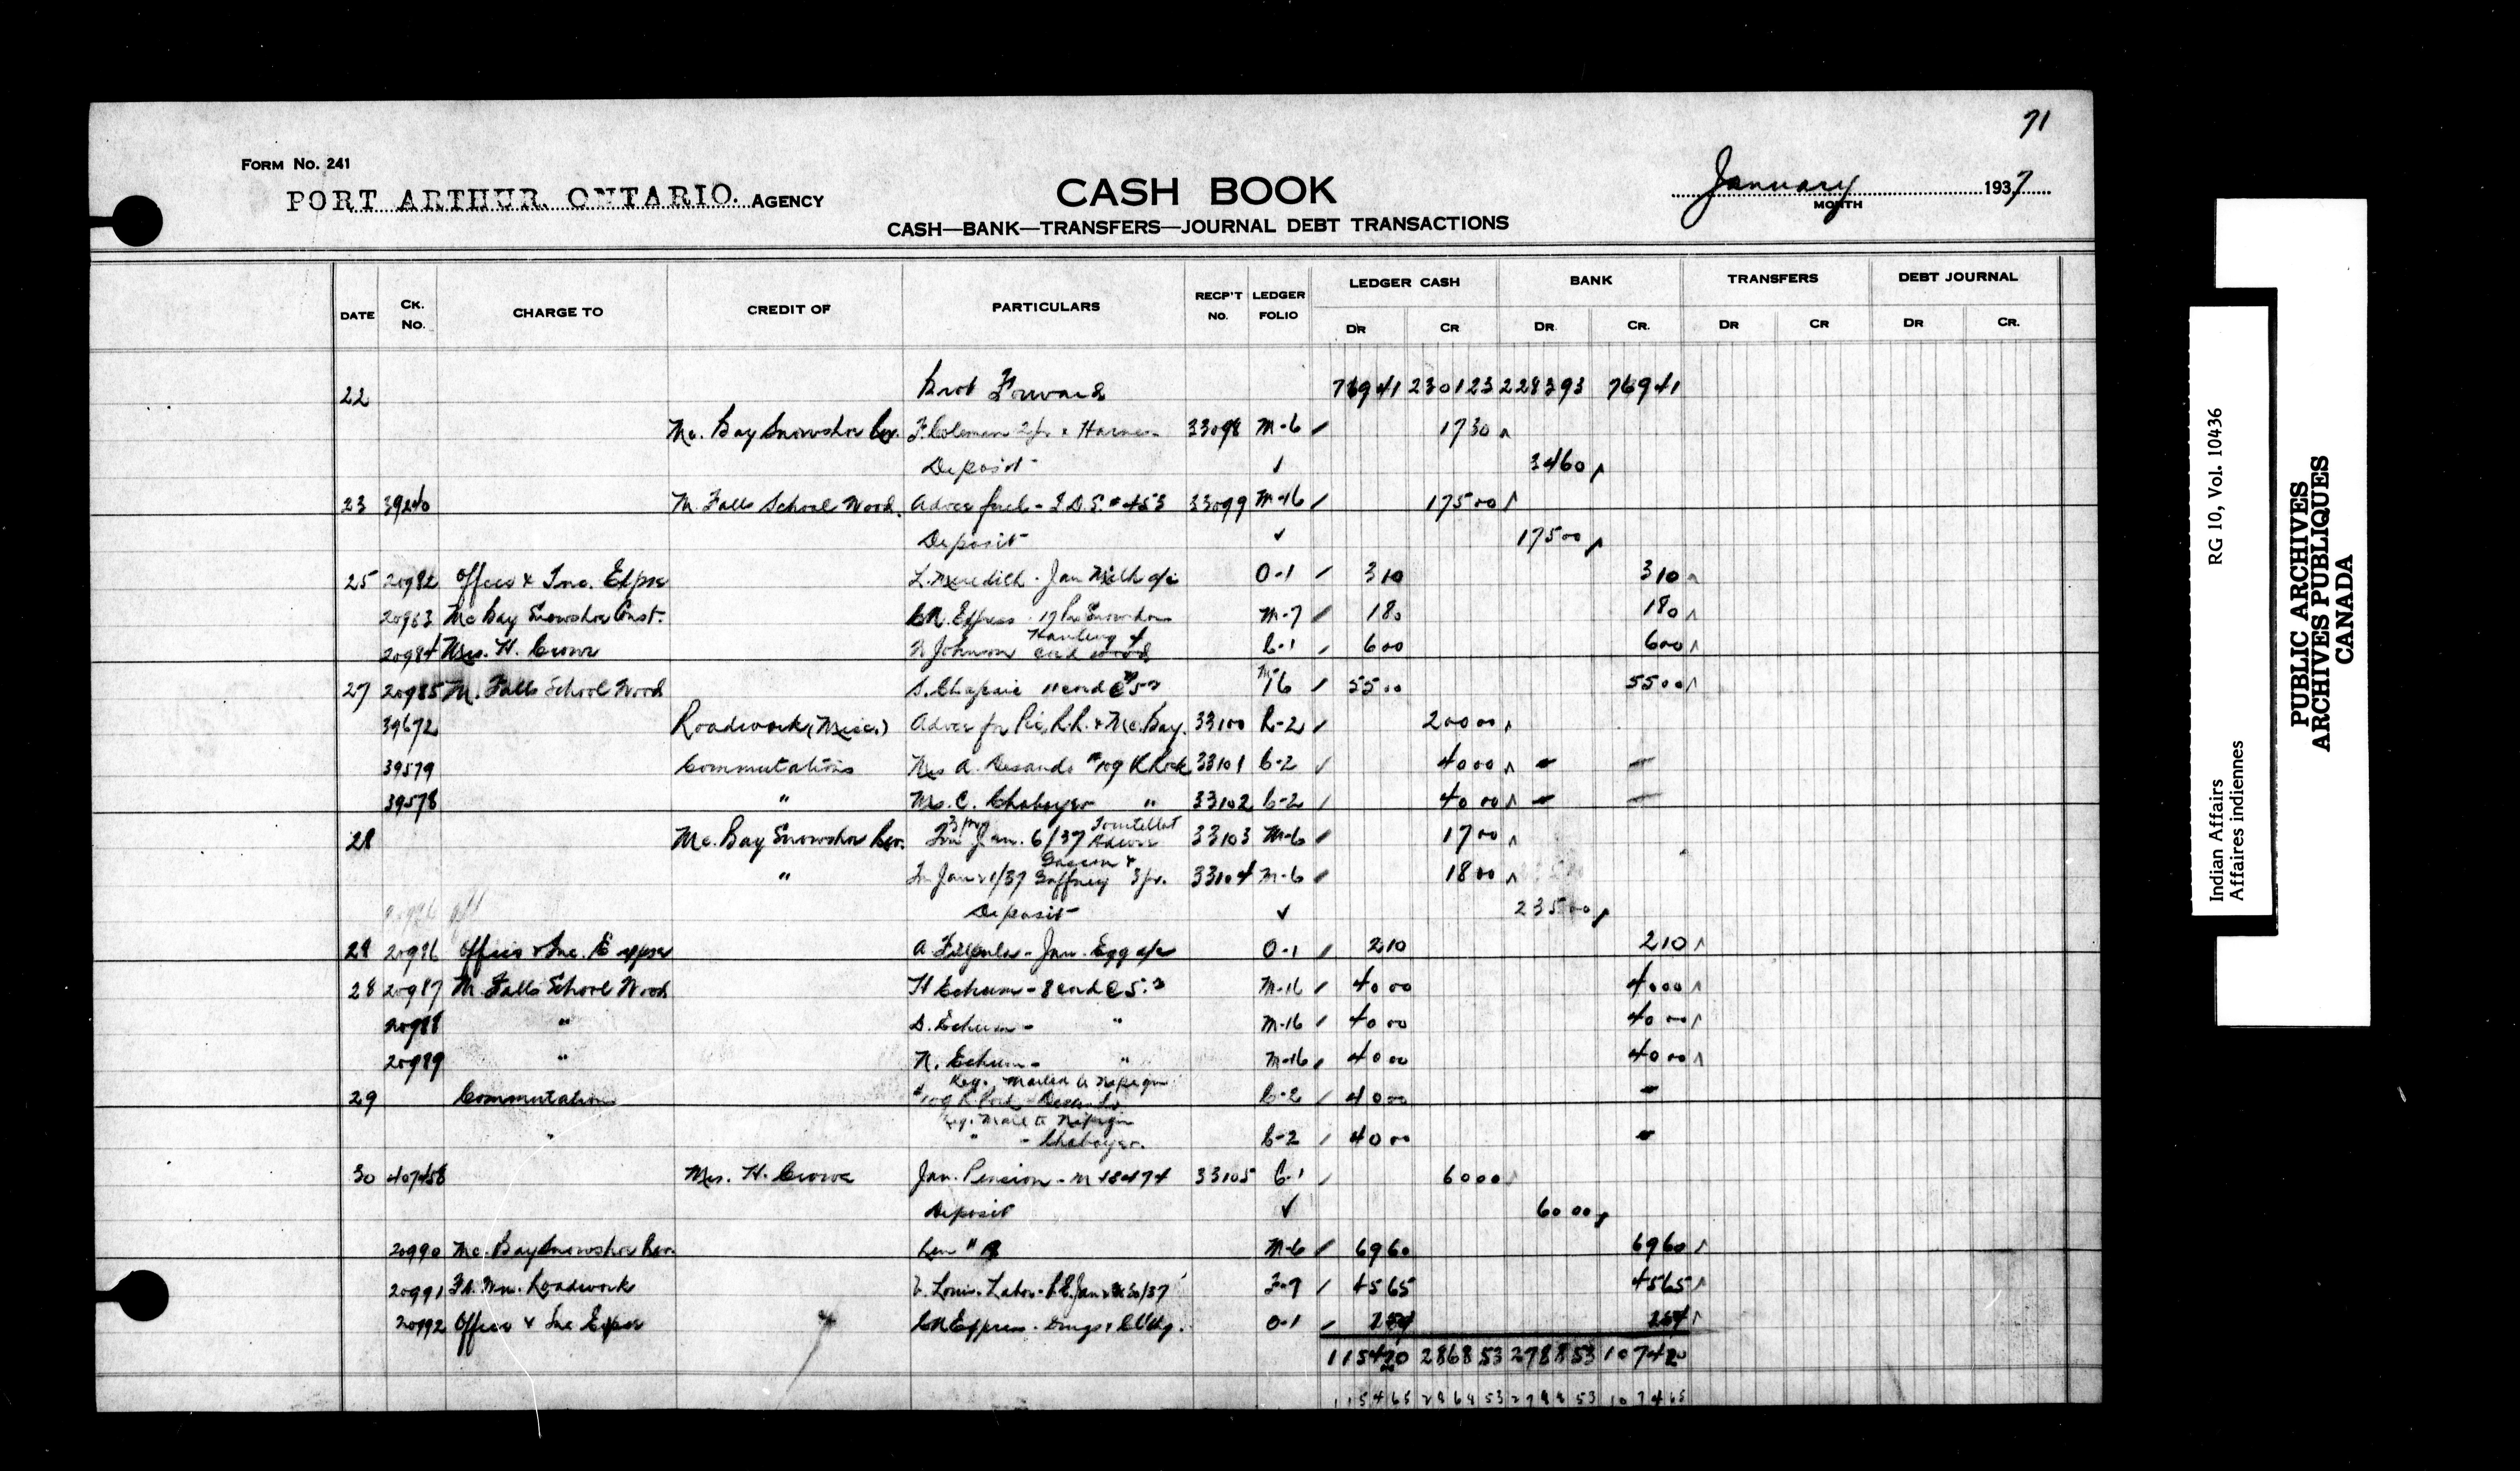 71
FORM No. 241
PORT ARTHUR. ONTARIO. AGENCY
CASH BOOK
January 1937
MONTH
CASH—BANK—TRANSFERS—JOURNAL DEBT TRANSACTIONS
DATE CK. No. CHARGE TO CREDIT OF PARTICULARS RECP'T No. LEDGER FOLIO LEDGER CASH BANK TRANSFERS DEBT JOURNAL
DR CR DR. CR. DR CR DR CR.
22 Brot Forward 76941 230123 228393 76941
Mc. Bay Snowshoe Rev. F. Coleman 2 pr & Harness 33098 M-6 1730
Deposit ✓ 3460
23 39240 M. Falls School Wood. Advce fuel - I.D.S. #453 33099 M-16 17500
Deposit ✓ 17500
25 20982 Office & Inc. Expse L. Meredith - Jan Milk a/c O-1 310 310
20983 Mc Bay Snowshoe Const. C.N. Express - 17 Prs Snowshoes M-7 180 180
20984 Mrs. H. Crowe N Johnson Hauling of cord wood C-1 600 600
27 20985 M. Falls School Wood S. Chapais 11 cord @ 5.00 M-16 5500 5500
39672 Roadwork (Misc.) Advce for Pic, R.R. & Mc.Bay. 33100 R-2 20000
39579 Commutations Mrs A. Desando #109 R Rock 33101 C-2 4000 - -
39578 " Mrs. C. Chaboyer " 33102 C-2 4000 - -
28 Mc. Bay Snowshoe Rev. Jan. 6/37 3 pr 33103 M-6 1700
" In Jan 21/37 Gascon & Gaffney 3 pr. 33104 M-6 1800
Deposit ✓ 23500
28 20986 Office & Inc. Expse A - Jan. Egg a/c O-1 210 210
28 20987 M. Falls School Wood H Echum - 8 cord @ 5.00 M-16 4000 4000
20988 " D. Echum - " M-16 4000 4000
20989 " N. Echum - " M-16 4000 4000
29 Commutation Reg. Mailed to Nipigon
#109 R. Rock - Desando C-2 4000 -
Reg. Mail to Nipigon
" " - Chaboyer. C-2 4000 -
30 407458 Mrs. H. Crowe Jan. Pension - M 48474 33105 C-1 6000
Deposit ✓ 6000
20990 Mc. Bay Snowshoe Rev. M-6 6960 6960
20991 Ft. Wm. Roadwork Louis. Labor - Jan 30/37 F-7 4565 4565
20992 Office & Inc Expse CN Express - Drugs & O-1 254 254
115420 286853 278853 107420
115465 286853 278853 107465
RG 10, Vol. 10436
Indian Affairs
Affaires indiennes
PUBLIC ARCHIVES
ARCHIVES PUBLIQUES
CANADA